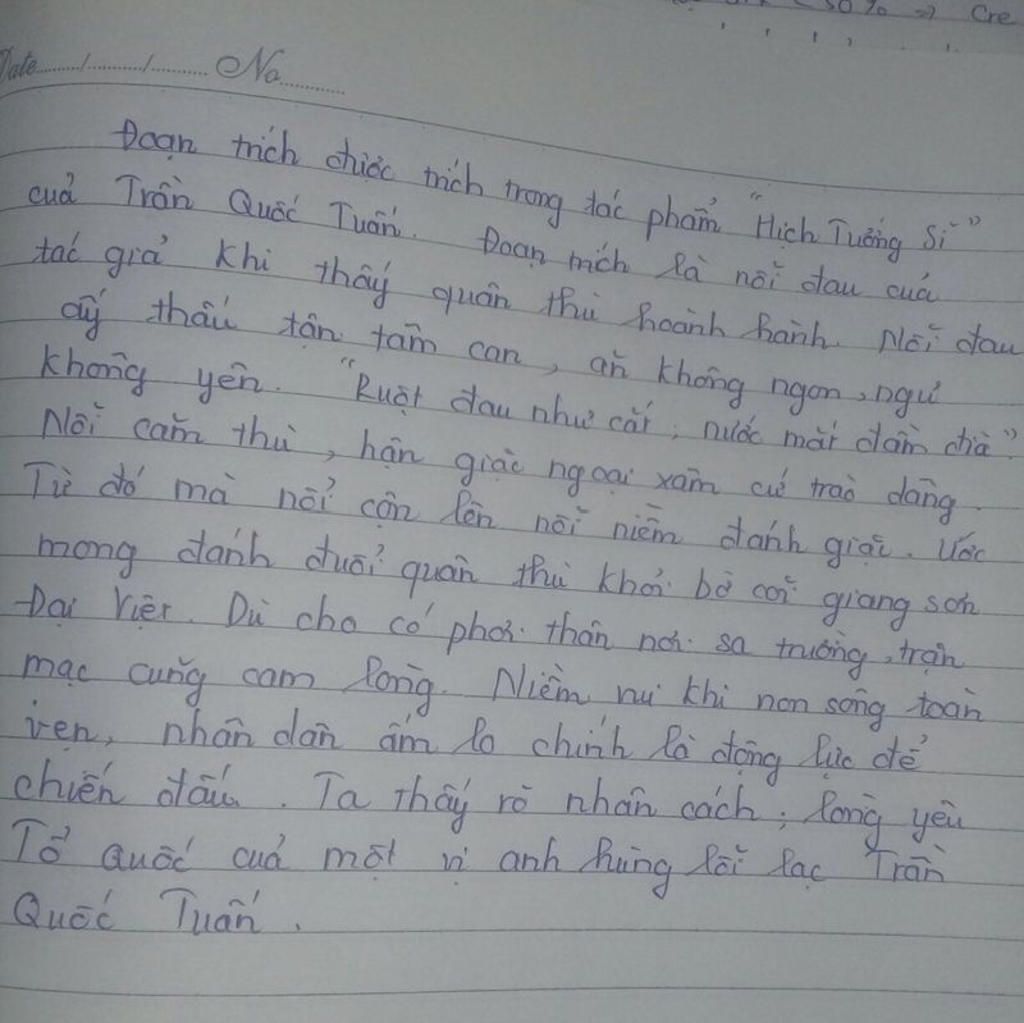 50% => Cre
Date....../....../...... No......
Đoạn trích được trích trong tác phẩm "Hịch Tướng Sĩ"
của Trần Quốc Tuấn. Đoạn trích là nỗi đau của
tác giả khi thấy quân thù hoành hành. Nỗi đau
ấy thấu tận tâm can, ăn không ngon, ngủ
không yên. "Ruột đau như cắt, nước mắt đầm đìa".
Nỗi căm thù, hận giặc ngoại xâm cứ trào dâng.
Từ đó mà nổi cộn lên nỗi niềm đánh giặc. Ước
mong đánh đuổi quân thù khỏi bờ cõi giang sơn
Đại Việt. Dù cho có phơi thân nơi sa trường, trận
mạc cũng cam lòng. Niềm vui khi non sông toàn
vẹn, nhân dân ấm lo chính là động lực để
chiến đấu. Ta thấy rõ nhân cách, lòng yêu
Tổ Quốc của một vị anh hùng lỗi lạc Trần
Quốc Tuấn.